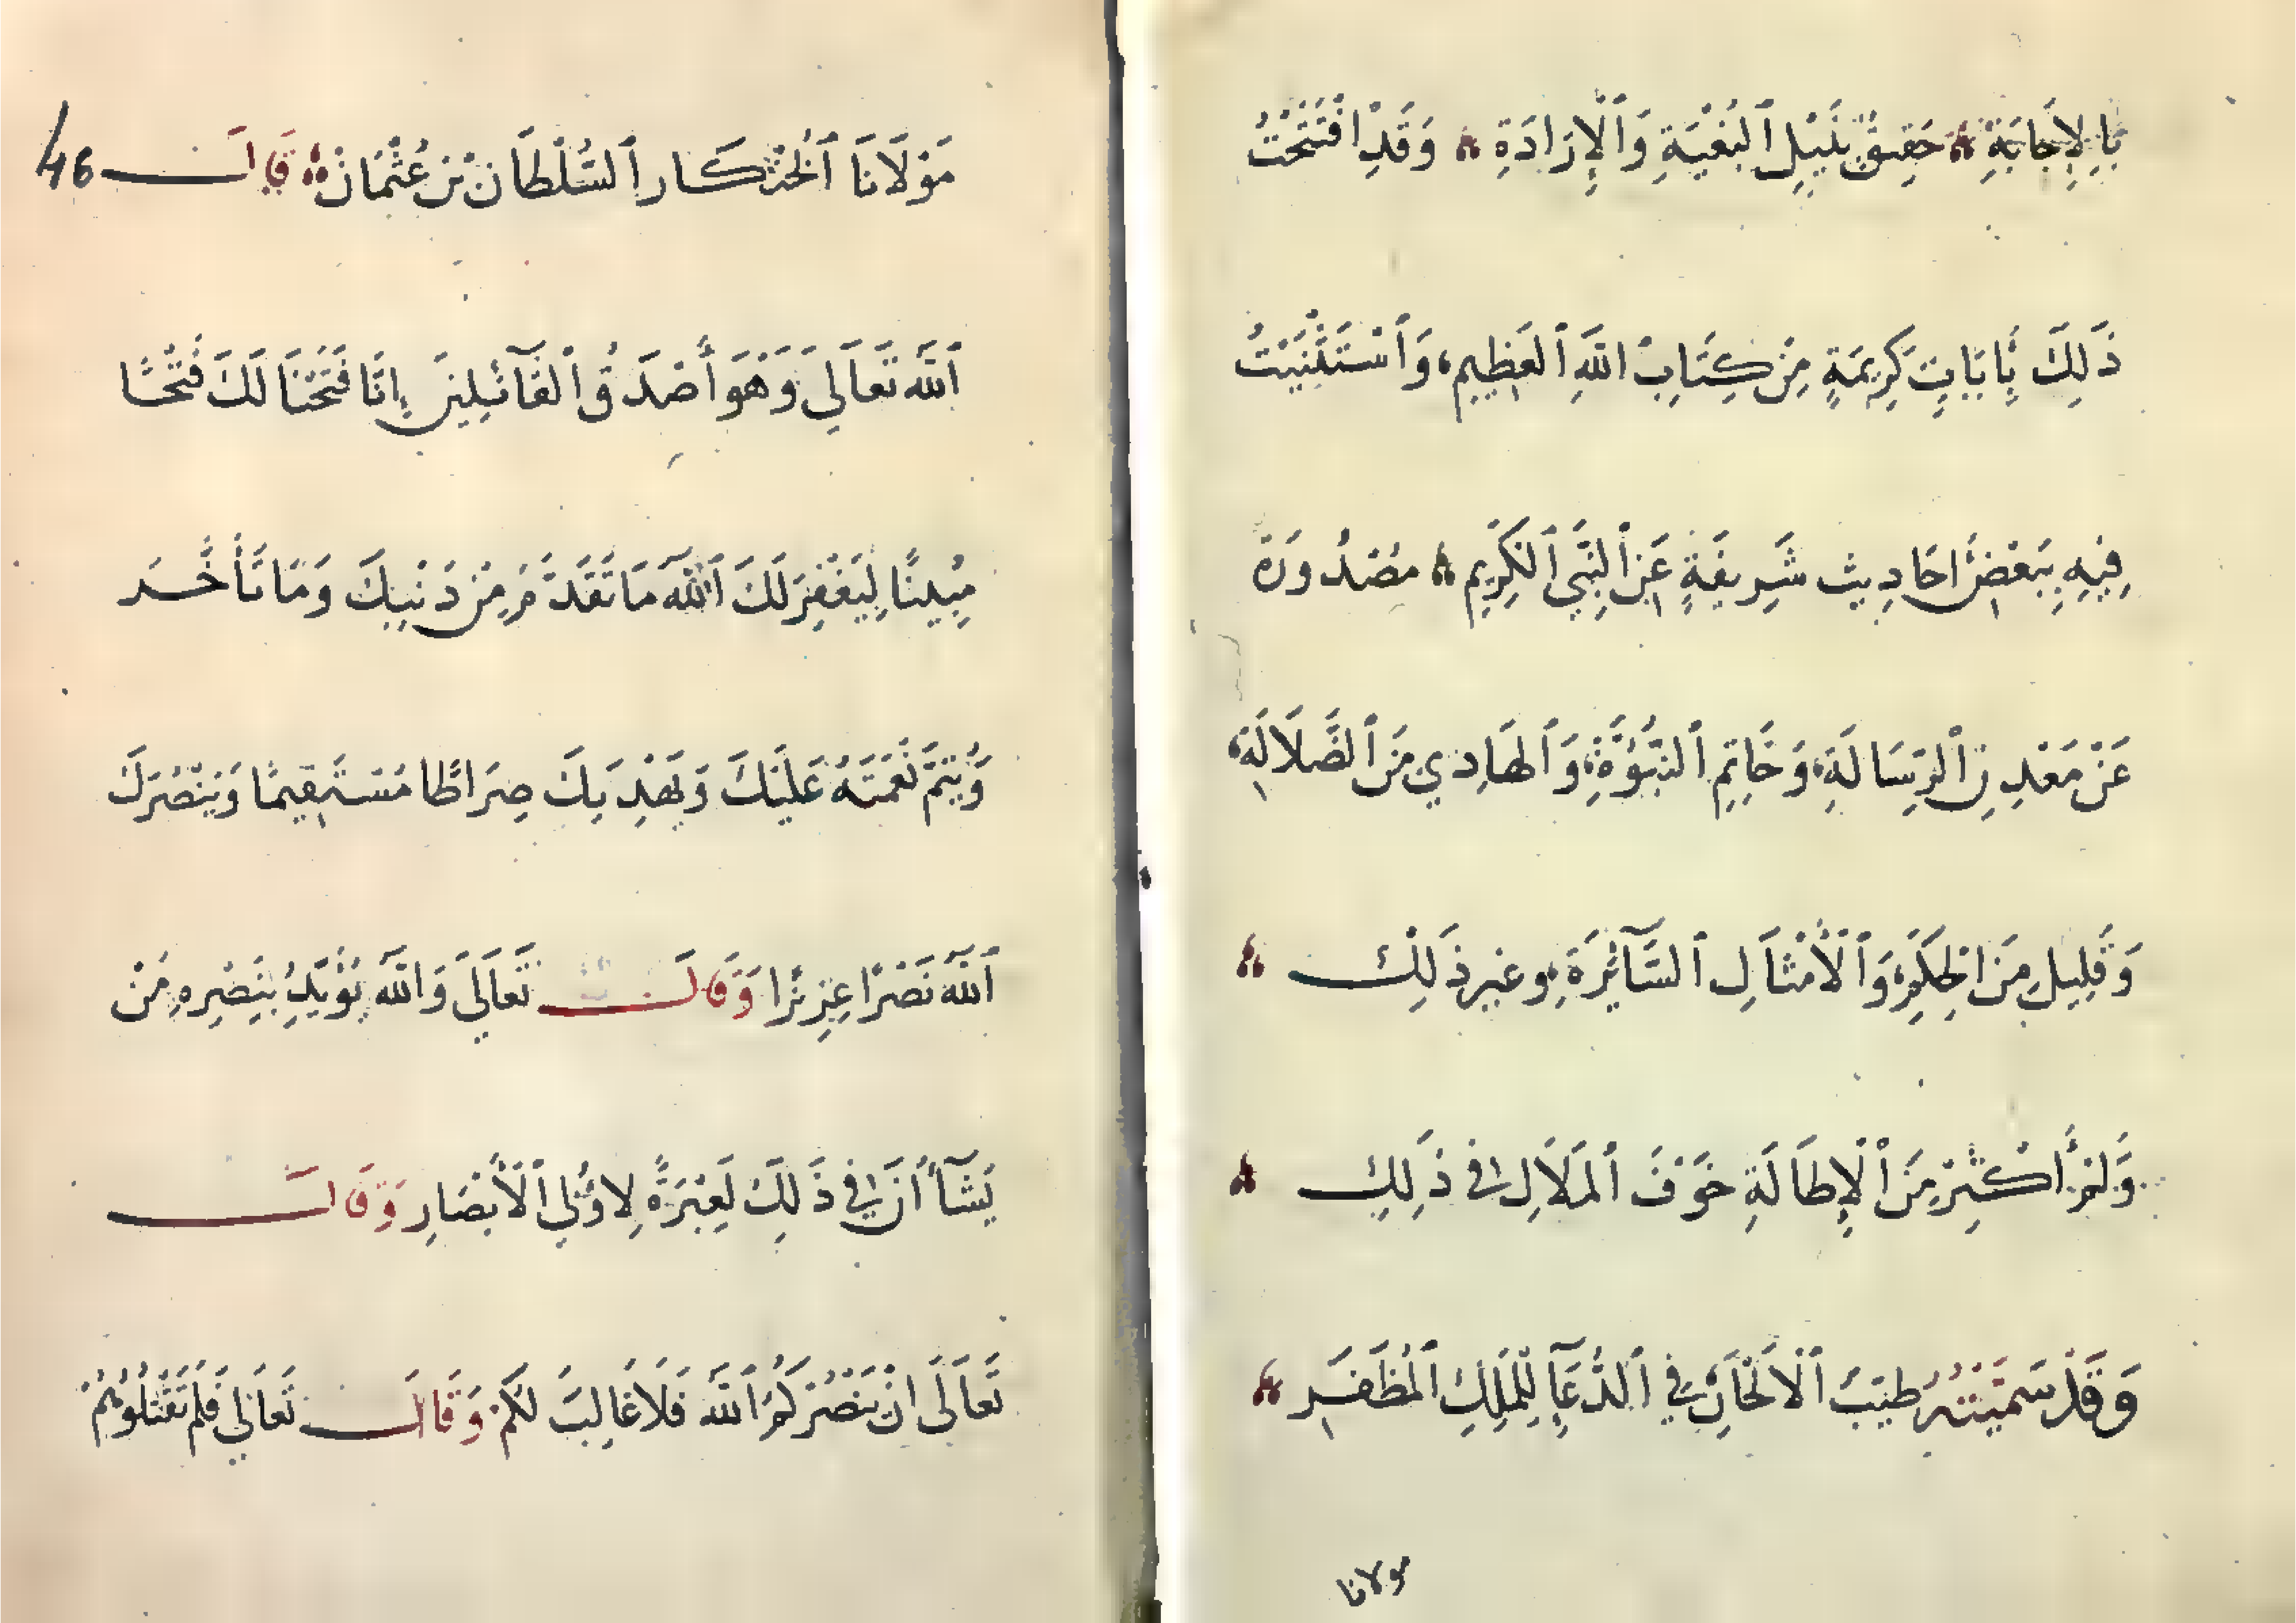 بِالإِجَابَةِ حَقِيقٌ بِنَيْلِ ٱلبُغْيَةِ وَٱلْإِرَادَةِ وَقَدِ افْتَتَحْتُ
ذَلِكَ بِأَيَاتٍ كَرِيمَةٍ مِنْ كِتَابِ اللَّهِ ٱلعَظِيمِ، وَٱسْتَثْنَيْتُ
فِيهِ بِبَعْضِ احَادِيث شَرِيفَةٍ عَنِ ٱلنَّبِي ٱلكَرِيمِ مَصْدُورَة
عَنْ مَعْدِنِ ٱلرِّسَالَةِ، وَخَاتِمِ ٱلنُّبُوَّةِ، وَٱلهَادِي مِنَ ٱلضَّلَالَةِ،
وَقَلِيلٍ مِنَ الحِكَمِ، وَٱلْأَمْثَالِ ٱلسَّآئِرَةِ، وغيرِ ذَلِكَ
وَلَمْ أُكْثِرْ مِنَ ٱلْإِطَالَةِ خَوْفَ ٱلمَلَالِ فِي ذَلِكَ
وَقَدْ سَمَّيْتُهُ طيبَ ٱلْأَلْحَانِ فِي ٱلدُّعَآءِ لِلْمَلِكِ ٱلمُظَفَّرِ
مولانا
46
مَوْلَانَا ٱلخُنْكَار ٱلسُّلْطَان بْنِ عُثْمَانْ قَالَ
ٱللَّه تَعَالَى وَهْوَ أَصْدَقُ ٱلْقَآئِلِينَ إِنَّا فَتَحْنَا لَكَ فَتْحًا
مُبِينًا لِيَغْفِرَ لَكَ ٱللَّهُ مَا تَقَدَّمَ مِنْ ذَنْبِكَ وَمَا تَأَخَّرَ
وَيُتِمَّ نِعْمَتَهُ عَلَيْكَ وَيَهْدِيَكَ صِرَاطًا مُسْتَقِيمًا وَيَنْصُرَكَ
ٱللَّهُ نَصْرًا عَزِيزًا وَقَالَ تَعَالَى وَاللَّهُ يُؤَيِّدُ بِنَصْرِهِ مَنْ
يَشَآءُ انَّ فِي ذَلِكَ لَعِبْرَةً لِأُولِي ٱلْأَبْصَارِ وَقَالَ
تَعَالَى انْ يَنْصُرْكُمُ ٱللَّهُ فَلَا غَالِبَ لَكُمْ وَقَالَ تَعَالَى فَلَمْ تَقْتُلُوهُمْ